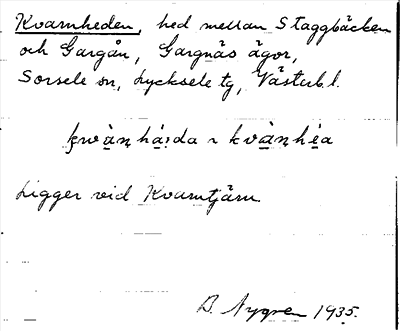 Kvarnheden, hed mellan Staggbäcken
och Gargån, Gargnäs ägor,
Sorsele sn, Lycksele tg, Västerb. l.
kwànhá:da ~ kvànhéa
Ligger vid Kvarntjärn.
B. Nygren 1935.